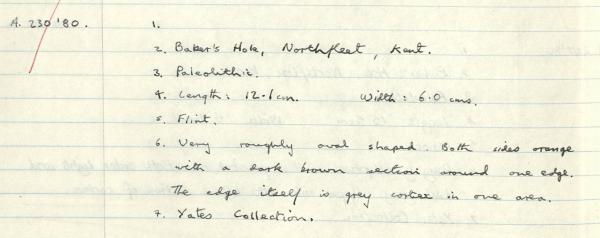 A. 230 '80. 1.
2. Baker's Hole, Northfleet, Kent.
3. Paleolithic.
4. Length: 12.1cm. Width: 6.0 cms.
5. Flint.
6. Very roughly oval shaped. Both sides orange
with a dark brown section around one edge.
The edge itself is grey cortex in one area.
7. Yates Collection.